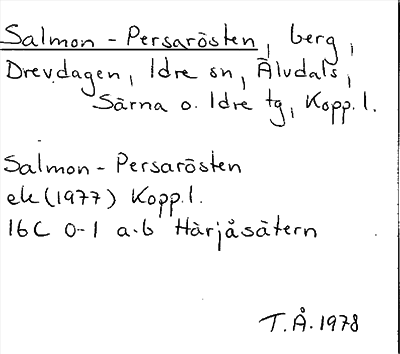 Salmon-Persarösten, berg,
Drevdagen, Idre sn, Älvdals,
Särna o. Idre tg, Kopp. l.
Salmon-Persarösten
ek (1977) Kopp. l.
16C 0-1 a-b Härjåsätern
T.Å. 1978